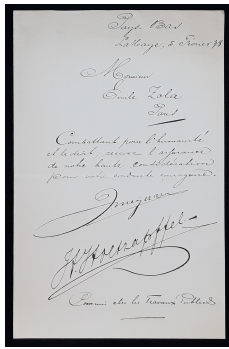 Pays-Bas
La Haye, 5 Fevrier 98
Monsieur
Emile Zola
Paris
Combattant pour l'humanité
et le droit, recevez l'assurance
de notre haute considération
pour votre conduite
H. Holtzapffel
des Travaux Publics